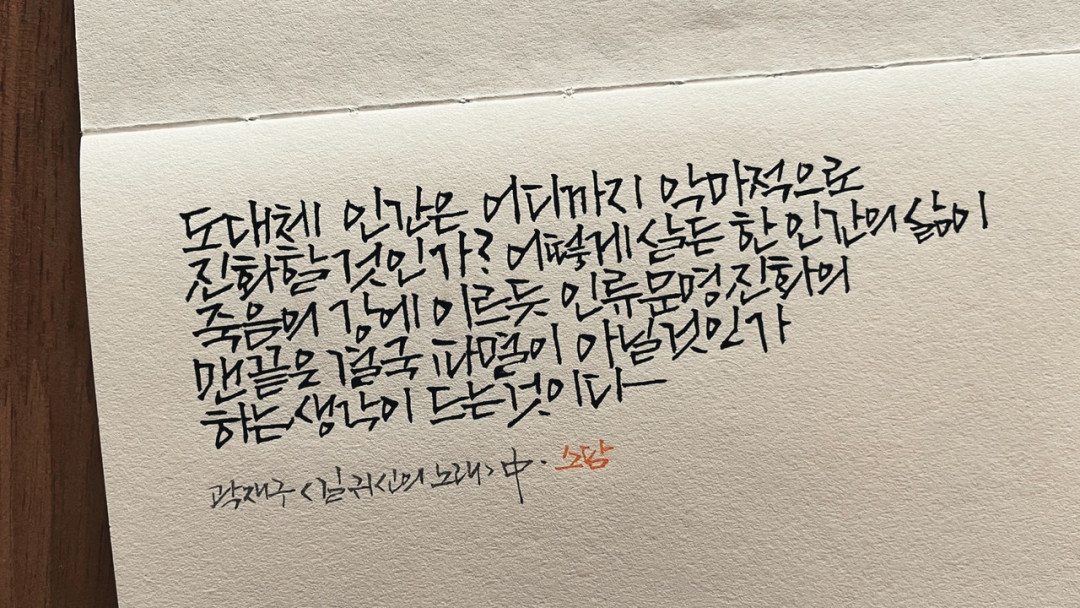 도대체 인간은 어디까지 악마적으로
진화할것인가? 어떻게살든 한 인간의 삶이
죽음의 강에 이르듯 인류문명진화의
맨끝은 결국 파멸이 아닐것인가
하는생각이 드는것이다—
곽재구 <길귀신의 노래> 中 · 소담